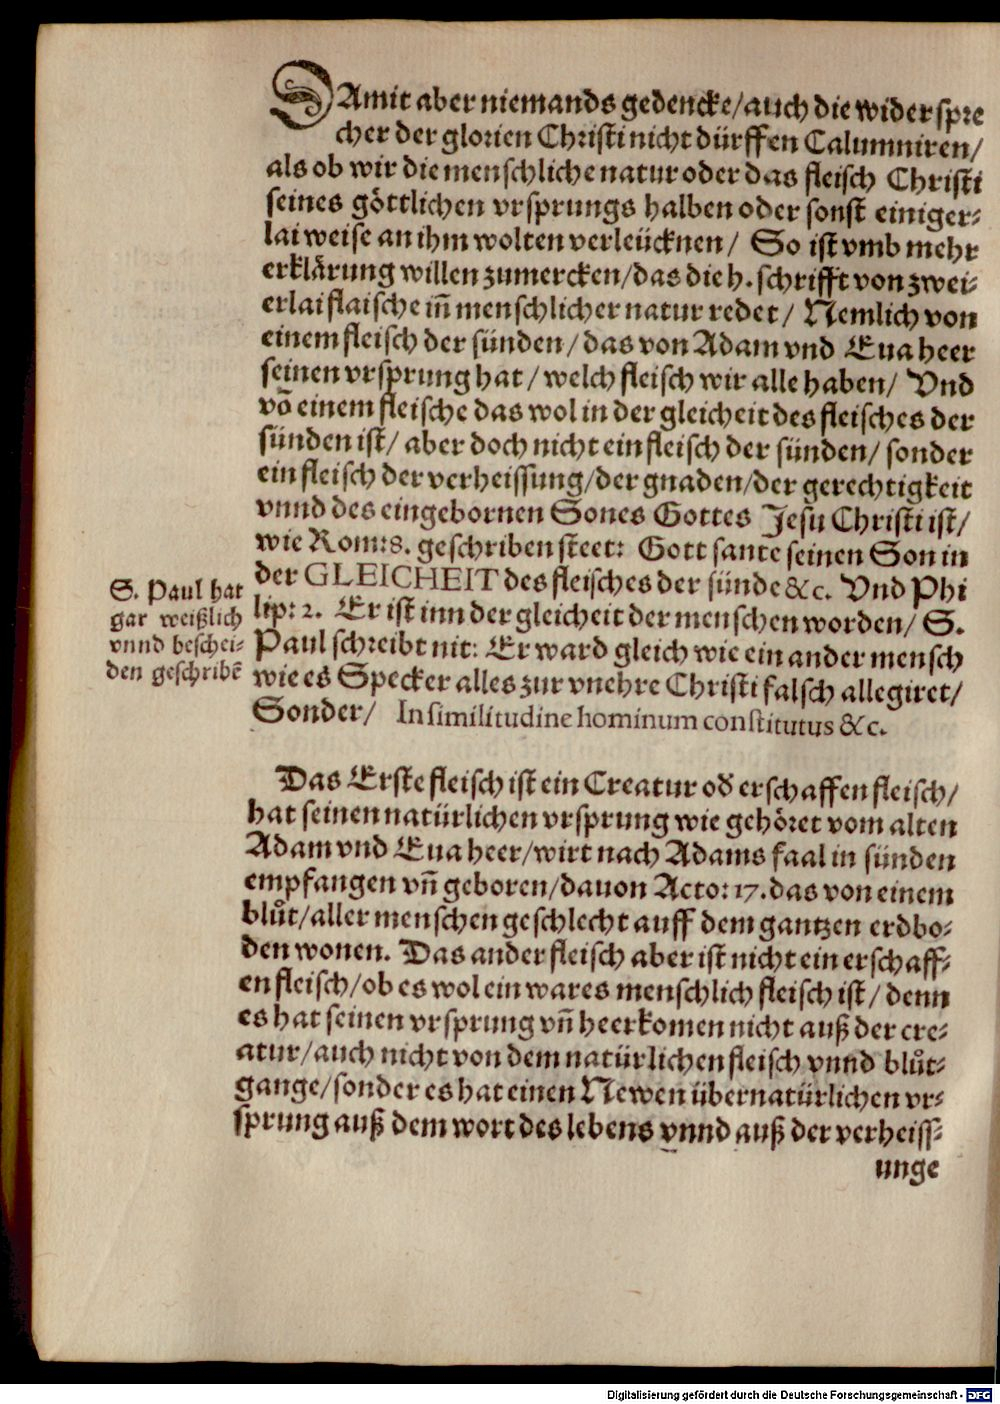 DAmit aber niemands gedencke/auch die widerspre
cher der glorien Christi nicht dürffen Calumniren/
als ob wir die menschliche natur oder das fleisch Christi
seines göttlichen vrsprungs halben oder sonst einiger-
lai weise an ihm wolten verleücknen/ So ist vmb mehr
erklärung willen zumercken/das die h. schrifft von zwei-
erlai flaische iñ menschlicher natur redet/ Nemlich von
einem fleisch der sünden/das von Adam vnd Eua heer
seinen vrsprung hat/welch fleisch wir alle haben/ Vnd
võ einem fleische das wol in der gleicheit des fleisches der
sünden ist/ aber doch nicht ein fleisch der sünden/sonder
ein fleisch der verheissung/der gnaden/der gerechtigkeit
vnnd des eingebornen Sones Gottes Jesu Christi ist/
wie Rom:8. geschriben steet: Gott sante seinen Son in
der GLEICHEIT des fleisches der sünde &c. Vnd Phi
lip: 2. Er ist inn der gleicheit der menschen worden/ S.
Paul schreibt nit: Er ward gleich wie ein ander mensch
wie es Specker alles zur vnehre Christi falsch allegiret/
Sonder/ In similitudine hominum constitutus &c.
S. Paul hat
gar weißlich
vnnd beschei-
den geschribẽ
Das Erste fleisch ist ein Creatur od̃ erschaffen fleisch/
hat seinen natürlichen vrsprung wie gehöret vom alten
Adam vnd Eua heer/wirt nach Adams faal in sünden
empfangen vñ geboren/dauon Acto: 17. das von einem
blůt/aller menschen geschlecht auff dem gantzen erdbo-
den wonen. Das ander fleisch aber ist nicht ein erschaff-
en fleisch/ob es wol ein wares menschlich fleisch ist/denn
es hat seinen vrsprung vñ heerkomen nicht auß der cre-
atur/auch nicht von dem natürlichen fleisch vnnd blůt-
gange/sonder es hat einen Newen übernatürlichen vr-
sprung auß dem wort des lebens vnnd auß der verheiss-
unge
Digitalisierung gefördert durch die Deutsche Forschungsgemeinschaft - DFG